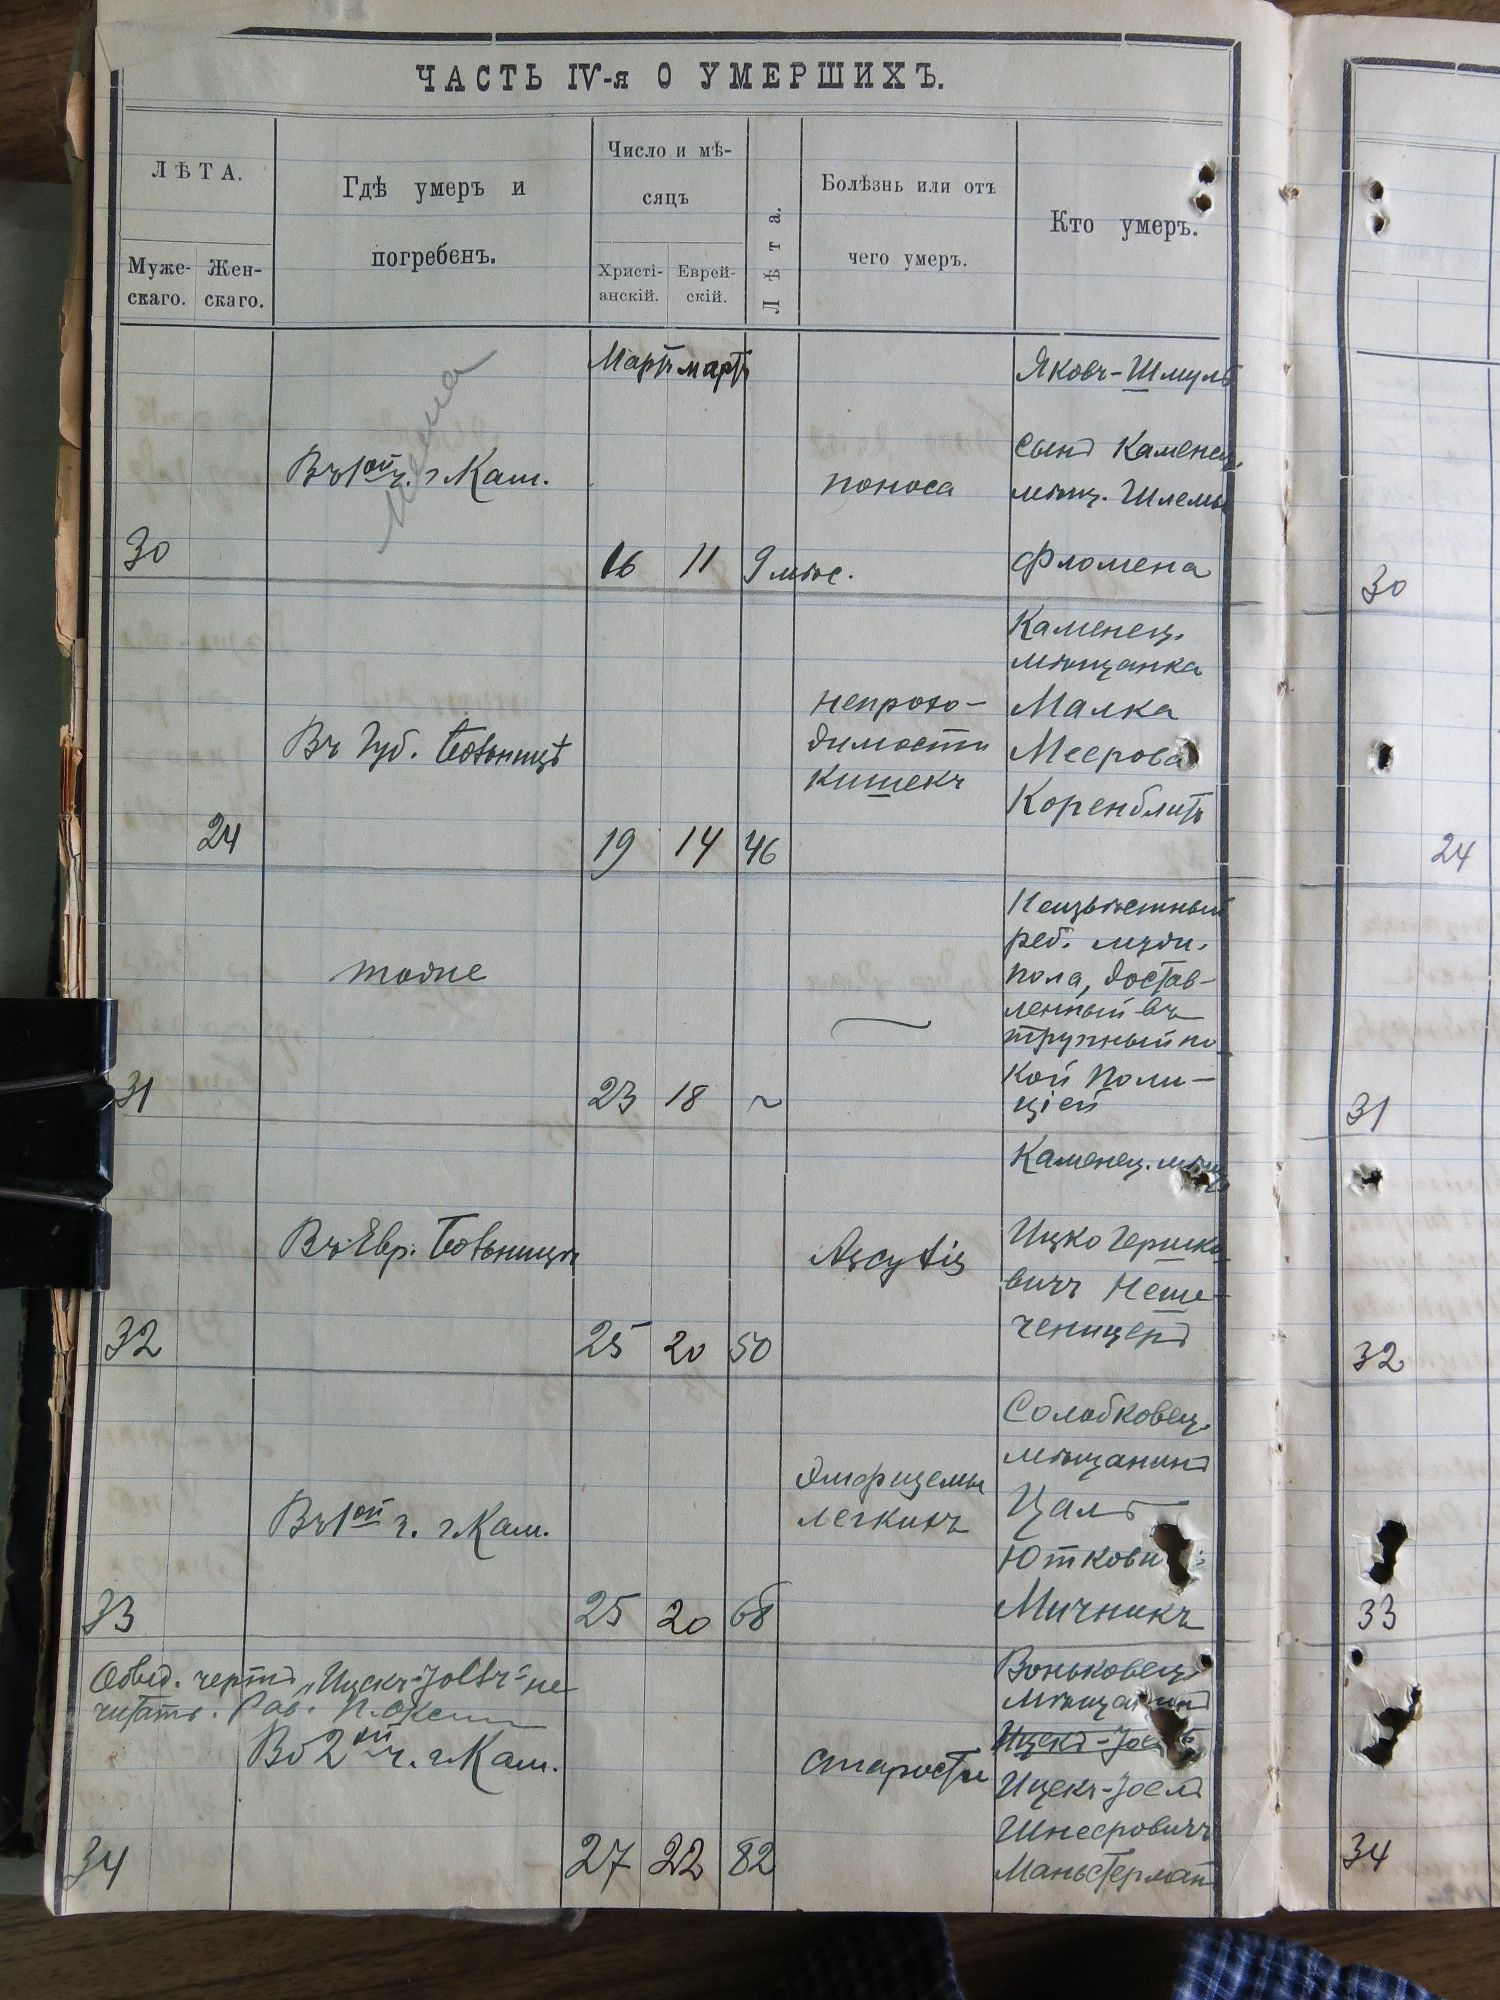 ЧАСТЬ IV-я О УМЕРШИХЪ.
ЛѢТА.
Муже-
скаго.
Жен-
скаго.
Гдѣ умеръ и
погребенъ.
Число и мѣ-
сяцъ
Христі-
анскій.
Еврей-
скій.
Лѣта.
Болѣзнь или отъ
чего умеръ.
Кто умеръ.
Мартъ мартъ
30
Въ 1ой ч. г. Кам.
16 11 9 мѣс.
поноса
Яковъ-Шмуль
сынъ Каменец.
мѣщ. Шлемы
Фломена
30
24
Въ Губ. больницѣ
19 14 46
непрохо-
димости
кишекъ
Каменец.
мѣщанка
Малка
Меерова
Коренблитъ
24
31
тоже
23 18
Неизвѣстный
реб. муж.
пола, достав-
ленный въ
трупный по-
кой Поли-
ціей
31
32
Въ Евр. больницѣ
25 20 50
Каменец. мѣщ.
Ицко Гершко-
вичъ Неше-
ченицеръ
32
33
Въ 1ой ч. г. Кам.
25 20 68
Эмфиземы
легкихъ
Солобковец.
мѣщанинъ
Цаль
Юткови
Мичникъ
33
читать. Рав.
34
Во 2ой ч. г. Кам.
27 22 82
старости
Воньковец.
мѣщанинъ
Ицекъ-Іоель
Шнееровичъ
Маньстерманъ
34